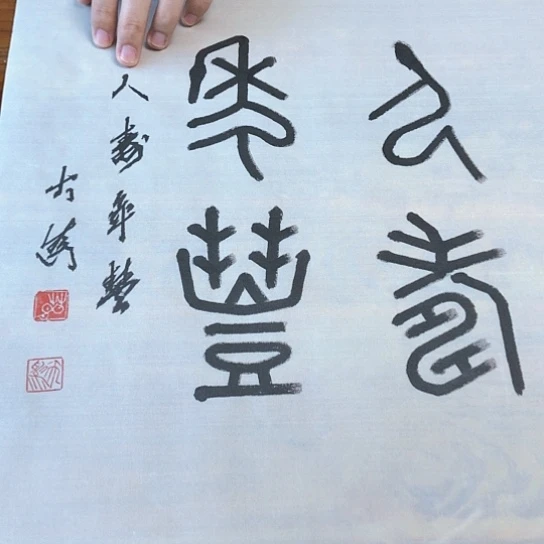 人壽
年豐
人壽年豐